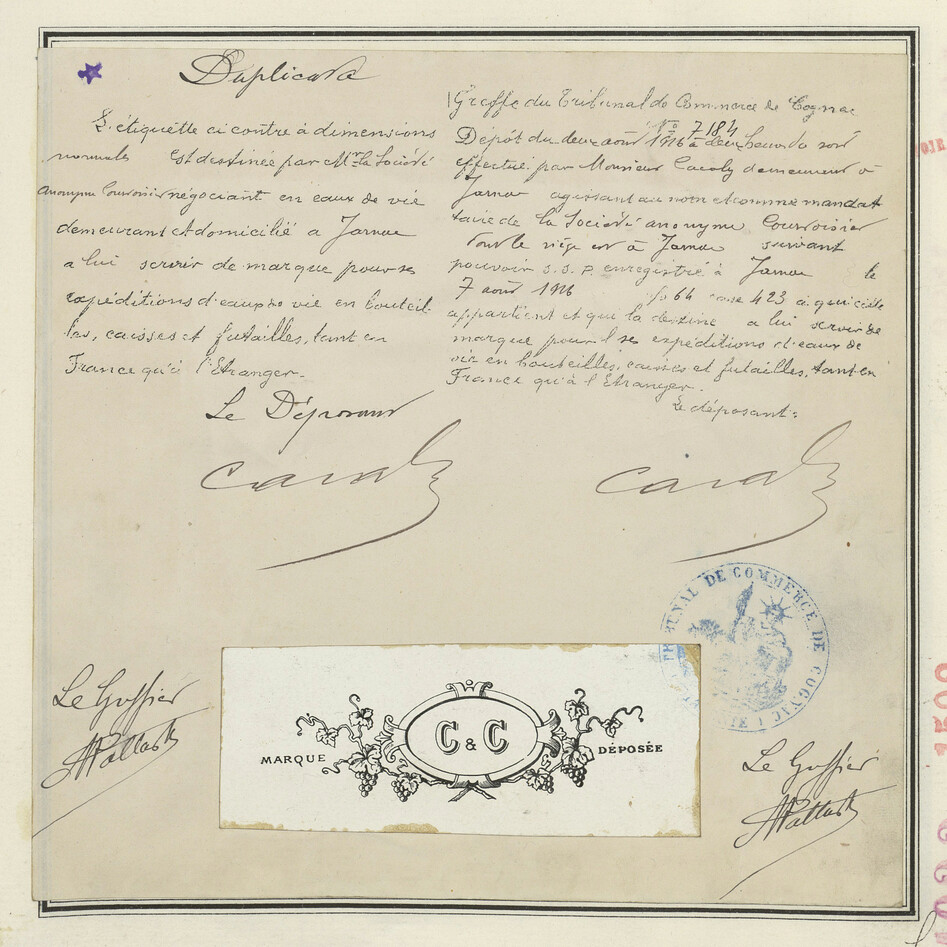 Duplicata
L'étiquette ci contre à dimensions
normales est destinée par Mr la Société
Anonyme Courvoisier négociant en eaux de vie
demeurant et domicilié a Jarnac
a lui servir de marque pour ses
expéditions d'eaux de vie en bouteil
les, caisses et futailles, tant en
France qu'à l'Etranger.
Le Déposant
Greffe du Tribunal de Commerce de Cognac
No 7184
Dépôt du deux août 1916 à deux heures du soir
effectué par Monsieur demeurant à
Jarnac agissant au nom et comme mandat
taire de la Société anonyme Courvoisier
dont le siège est à Jarnac suivant
pouvoir s.s.p. enregistré à Jarnac le
7 août 1916 fo 64 case 423 à qui elle
appartient et qui la destine a lui servir de
marque pour l ses expéditions d'eaux de
vie en bouteilles, caisses et futailles, tant en
France qu'à l'Etranger.
Le déposant:
TRIBUNAL DE COMMERCE DE COGNAC
Le Greffier
MARQUE C & C DÉPOSÉE
Le Greffier